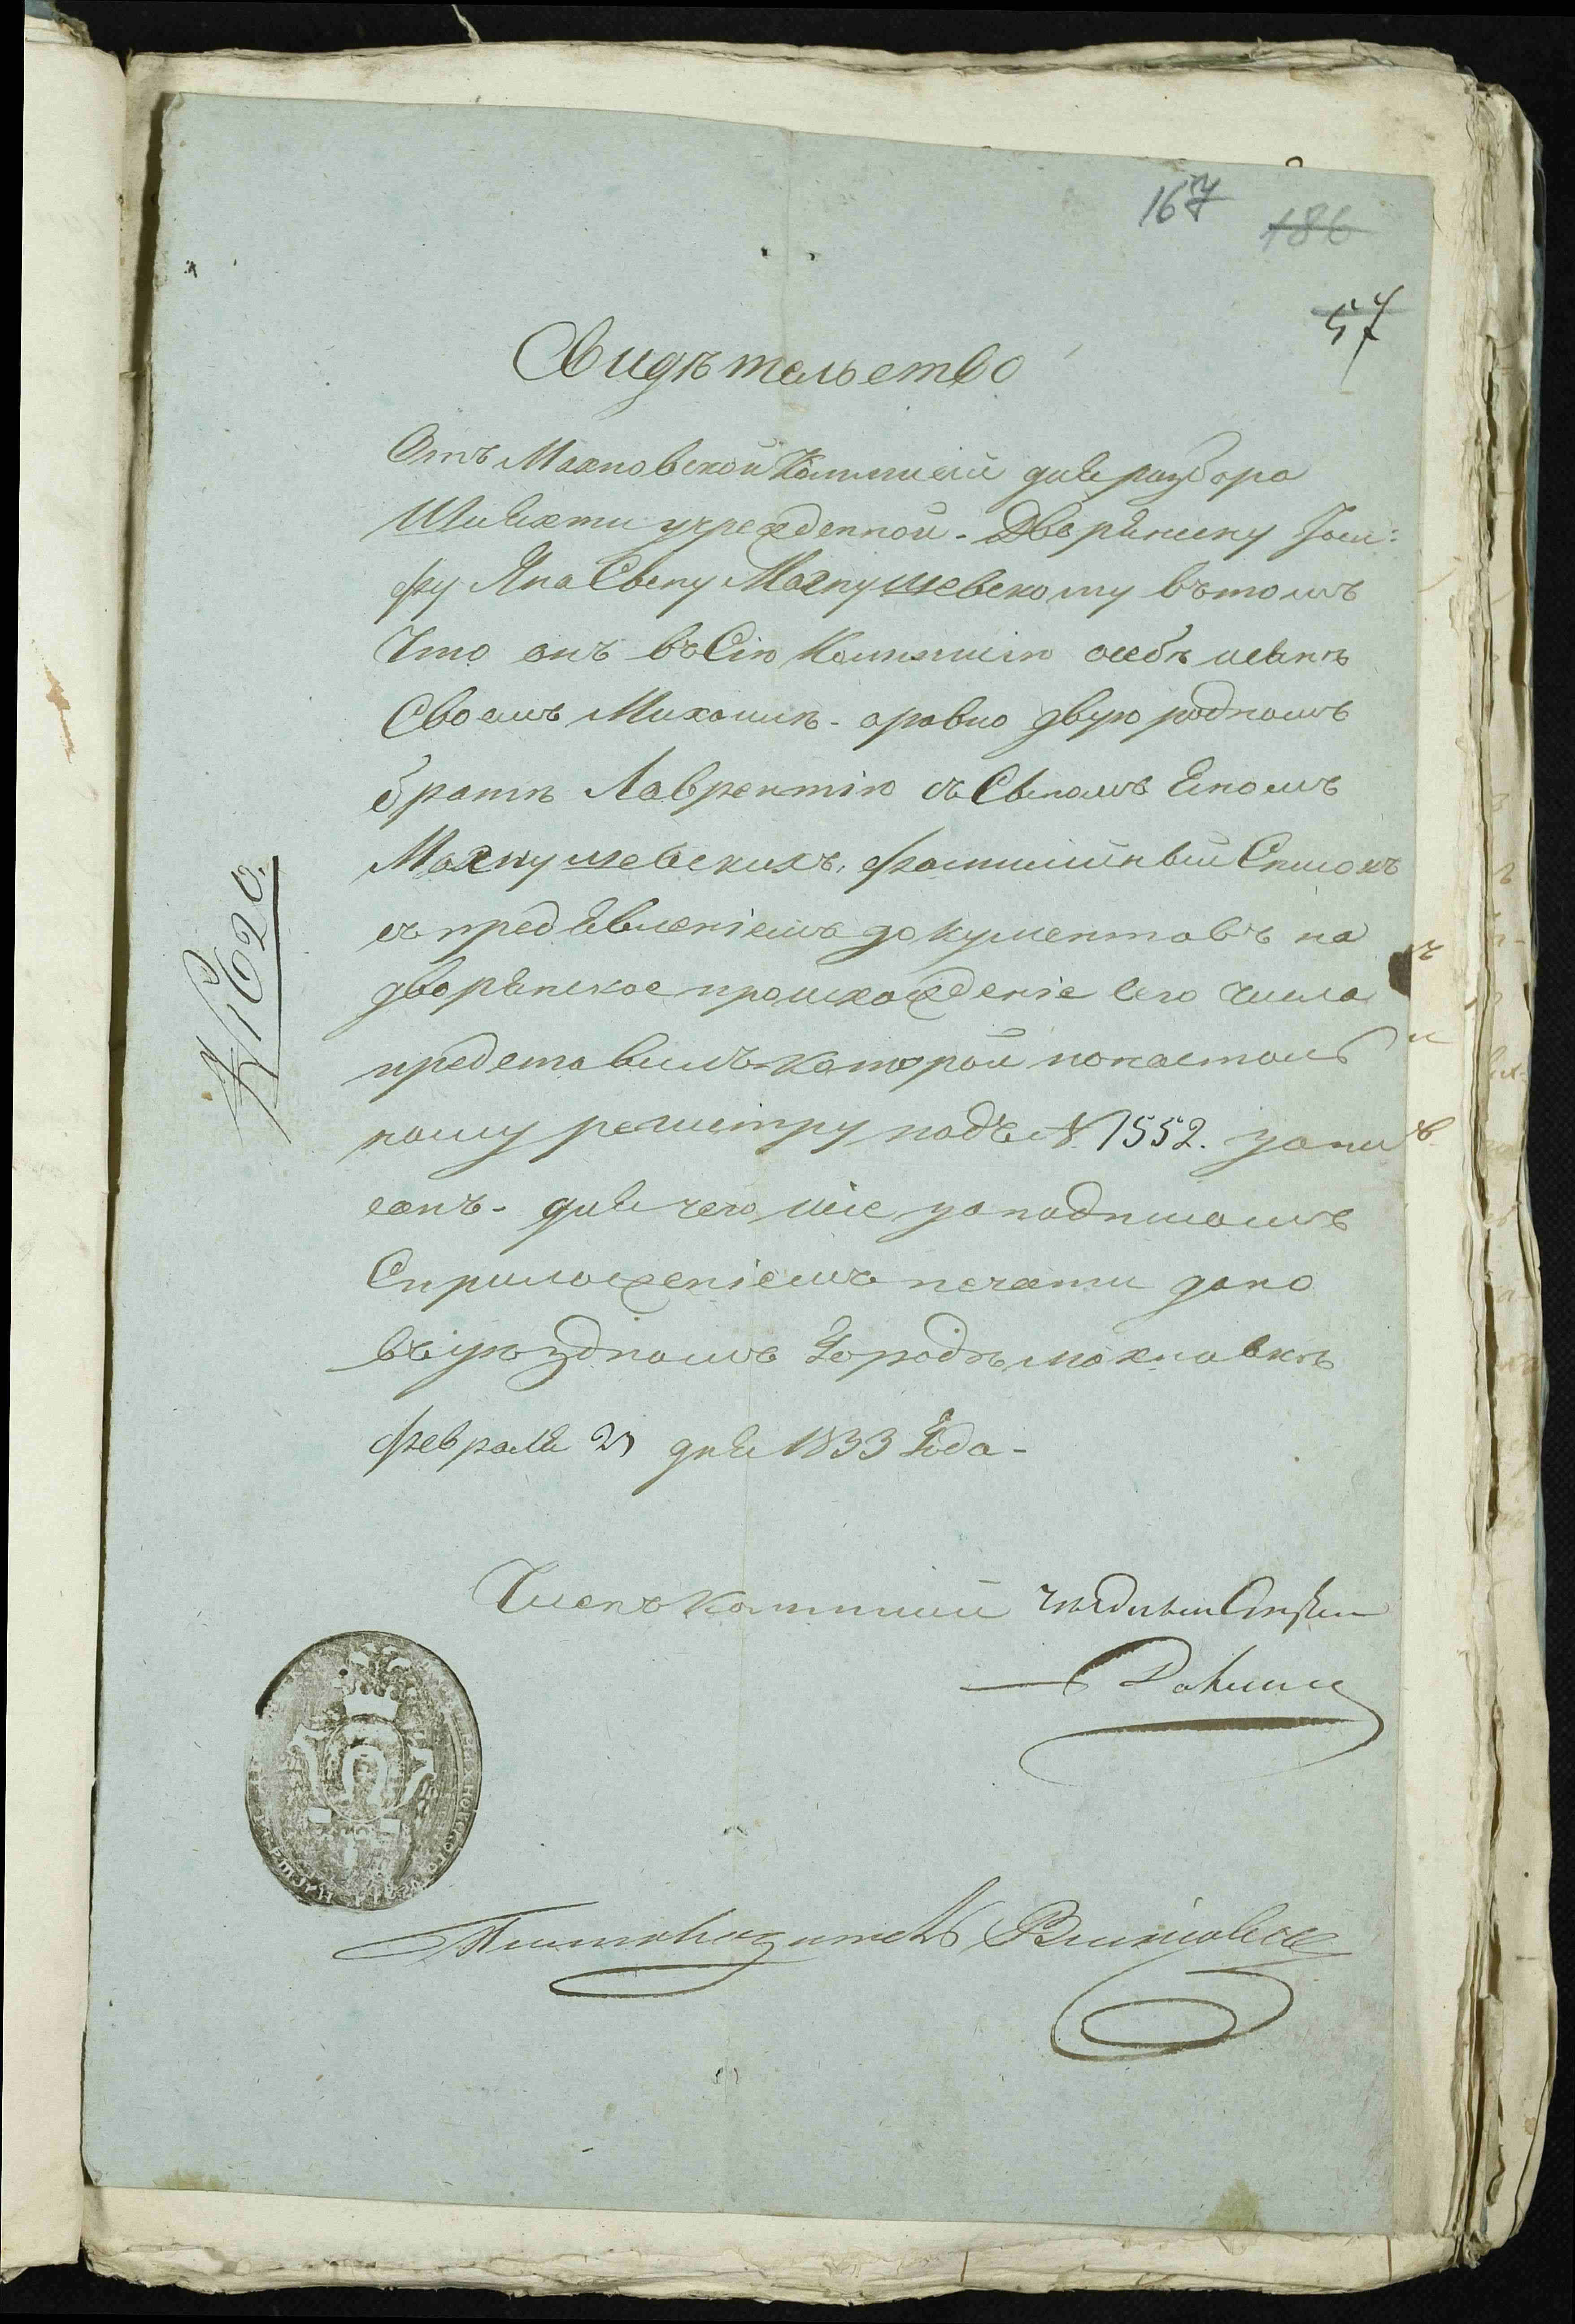 167 186
57
Свидѣтельство
Отъ Махновской Коммисіи для разбора
Шляхти учрежденной - Дворянину Іоси:
фу Яна Сыну Магнушевскому въ томъ
Что онъ въ Сію Коммисію осебѣ исынѣ
Своемъ Михаилѣ - аравно двуюродномъ
братѣ Лаврентію съ Сыномъ Яномъ
Магнушевскихъ, фамилійный Списокъ
съ предъявленіемъ документовъ на
дворянское происхожденіе сего числа
представилъ которой понастоль
ному регистру подъ № 1552. запи
санъ - для чего сіе заподписомъ
Сприложеніемъ печати дано
въ уѣздномъ Городѣ махновкѣ
февраля 21 дня 1833 Года -
№ 1620.
Членъ Коммисіи
Письмоводитель